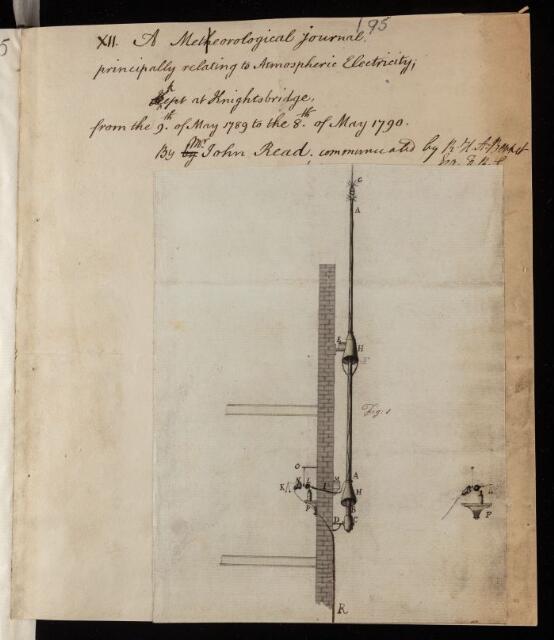 195
5
XII. A Meteorological Journal,
principally relating to Atmospheric Electricity;
Kept at Knightsbridge,
from the 9th. of May 1789 to the 8th. of May 1790.
By Mr John Read; communicated by R. H. A. Bennet
Esq. F. R. S.
G
A
H
Fig. 1
O
K
I
M
A
H
B
F
D
C
P
R